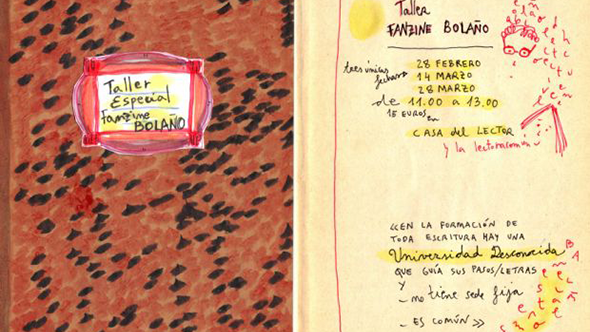 Taller
Especial
Fanzine
BOLAÑO
Taller
FANZINE BOLAÑO
tres únicas
fechas
28 FEBRERO
14 MARZO
28 MARZO
de 11.00 a 13.00
15 EUROS en
CASA del LECTOR
y la lectoracomún
«EN LA FORMACIÓN DE
TODA ESCRITURA HAY UNA
Universidad Desconocida
QUE GUÍA SUS PASOS/LETRAS
Y
- no tiene sede fija
- ES COMÚN»